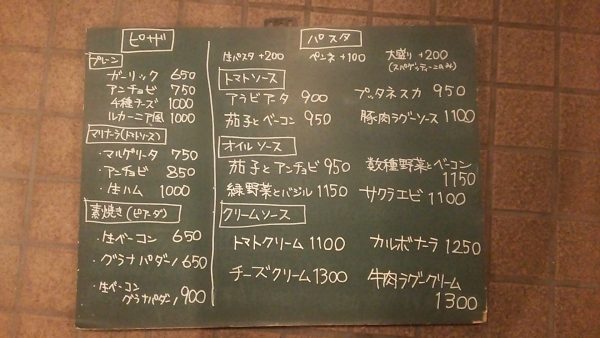 ピザ
プレーン
ガーリック 650
アンチョビ 750
4種チーズ 1000
ルカーニア風 1000
マリナーラ(トマトソース)
・マルゲリータ 750
・アンチョビ 850
・生ハム 1000
素焼き(ピアーダ)
・生ベーコン 650
・グラナパダーノ 650
・生ベーコン
グラナパダーノ 900
パスタ
生パスタ +200 ペンネ +100 大盛り +200
(スパゲッティーニのみ)
トマトソース
アラビアータ 900 プッタネスカ 950
茄子とベーコン 950 豚肉ラグーソース 1100
オイルソース
茄子とアンチョビ 950 数種野菜とベーコン
1150
緑野菜とバジル 1150 サクラエビ 1100
クリームソース
トマトクリーム 1100 カルボナーラ 1250
チーズクリーム 1300 牛肉ラグークリーム
1300